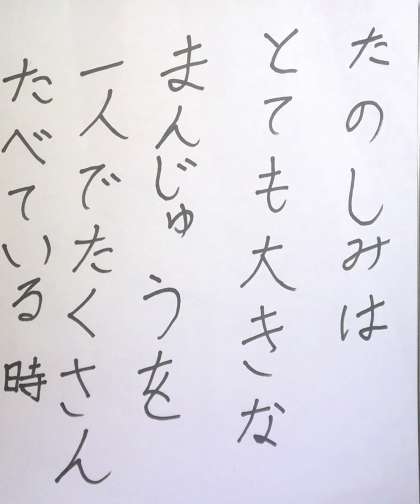 たのしみは
とても大きな
まんじゅうを
一人でたくさん
たべている時